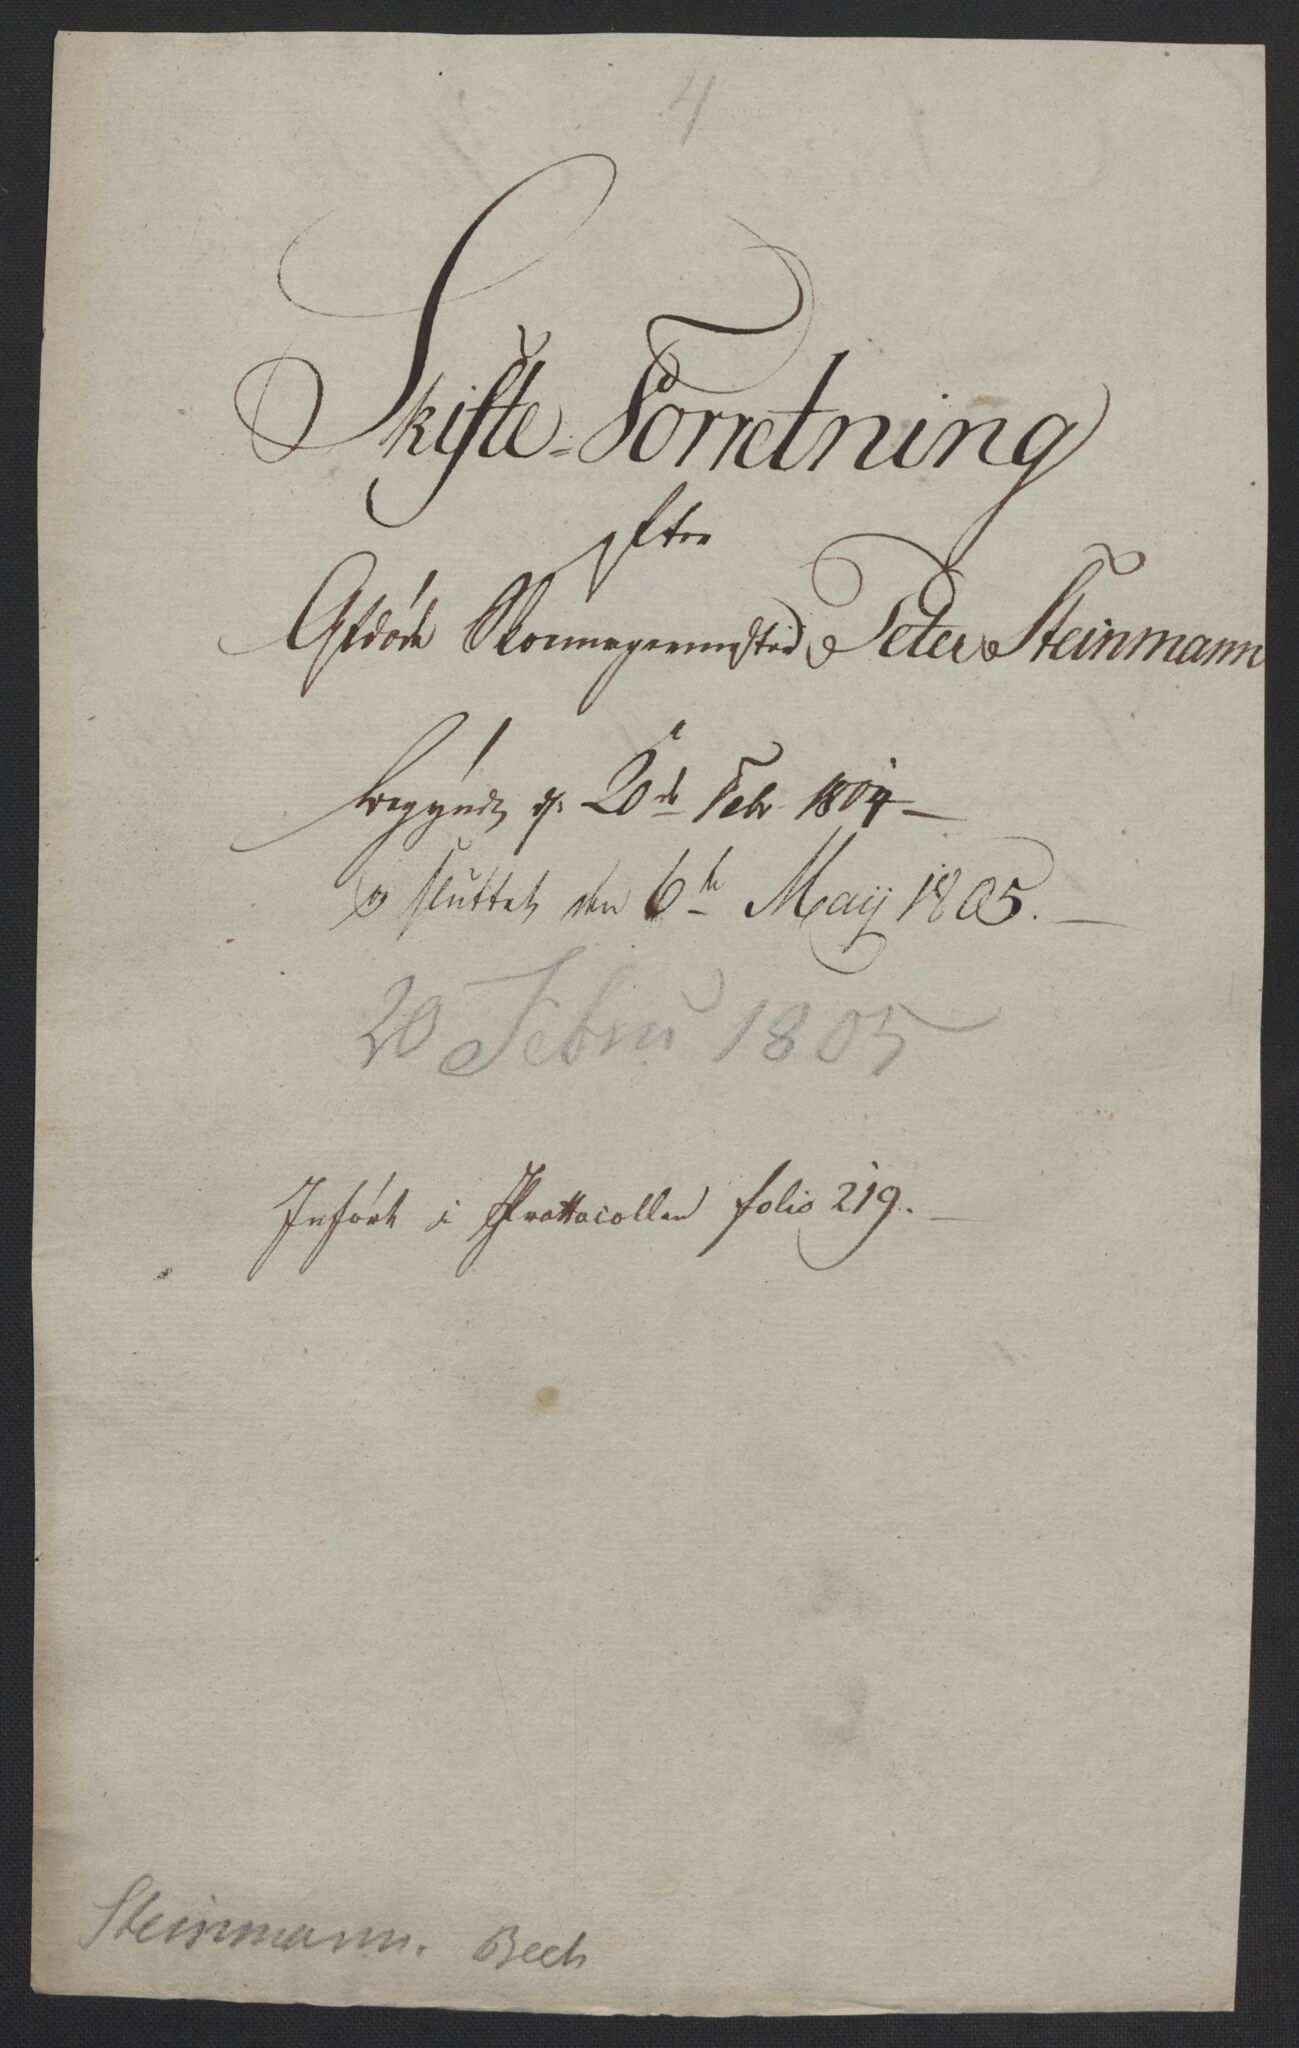 4
Skifte-Forretning
efter
Afdøde Skomagermester Peter Steinmann
begyndt d: 20de Febr 1804
og sluttet den 6te Maij 1805.
20 Febru 1805
Indført i Skifte Prottocollen folio 219.
Steinmann. Bech